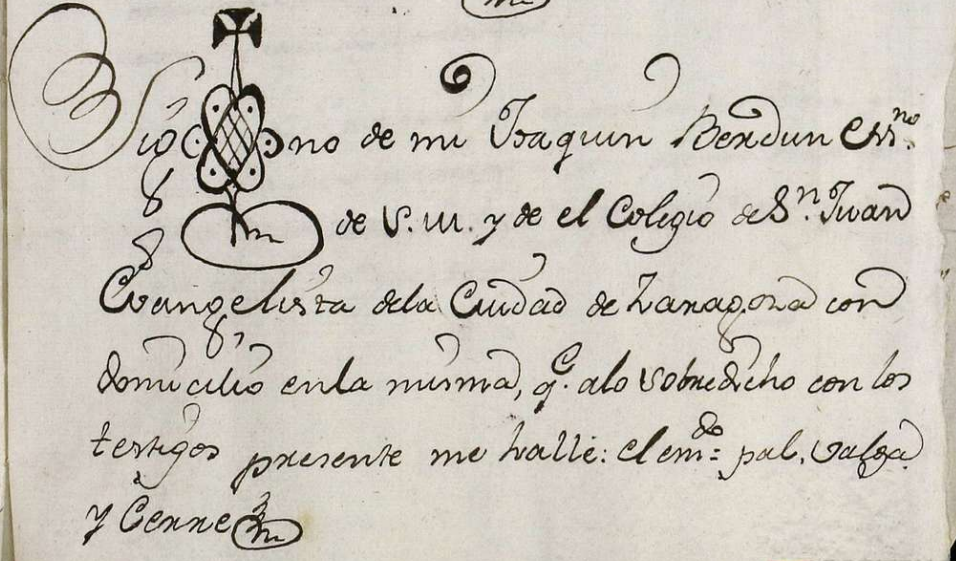 Sig no de mi Joaquin Berdun Essno.
de S. M. y de el Colegio de Sn. Juan
Evangelista dela Ciudad de Zaragoza con
domicilio enla misma, q.e alo sobredicho con los
testigos presente me halle: el emdo: pal, valga
y Cerre